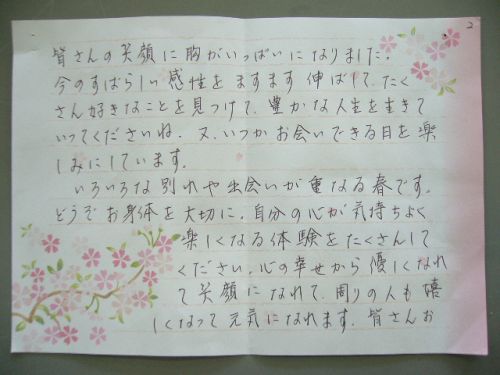 2
皆さんの笑顔に胸がいっぱいになりました。
今のすばらしい感性をますます伸ばして、たく
さん好きなことを見つけて、豊かな人生を生きて
いってくださいね。又、いつかお会いできる日を楽
しみにしています。
いろいろな別れや出会いが重なる春です。
どうぞお身体を大切に、自分の心が気持ちよく
楽しくなる体験をたくさんして
ください。心の幸せから優しくなれ
て笑顔になれて、周りの人も嬉
しくなって元気になれます。皆さんお